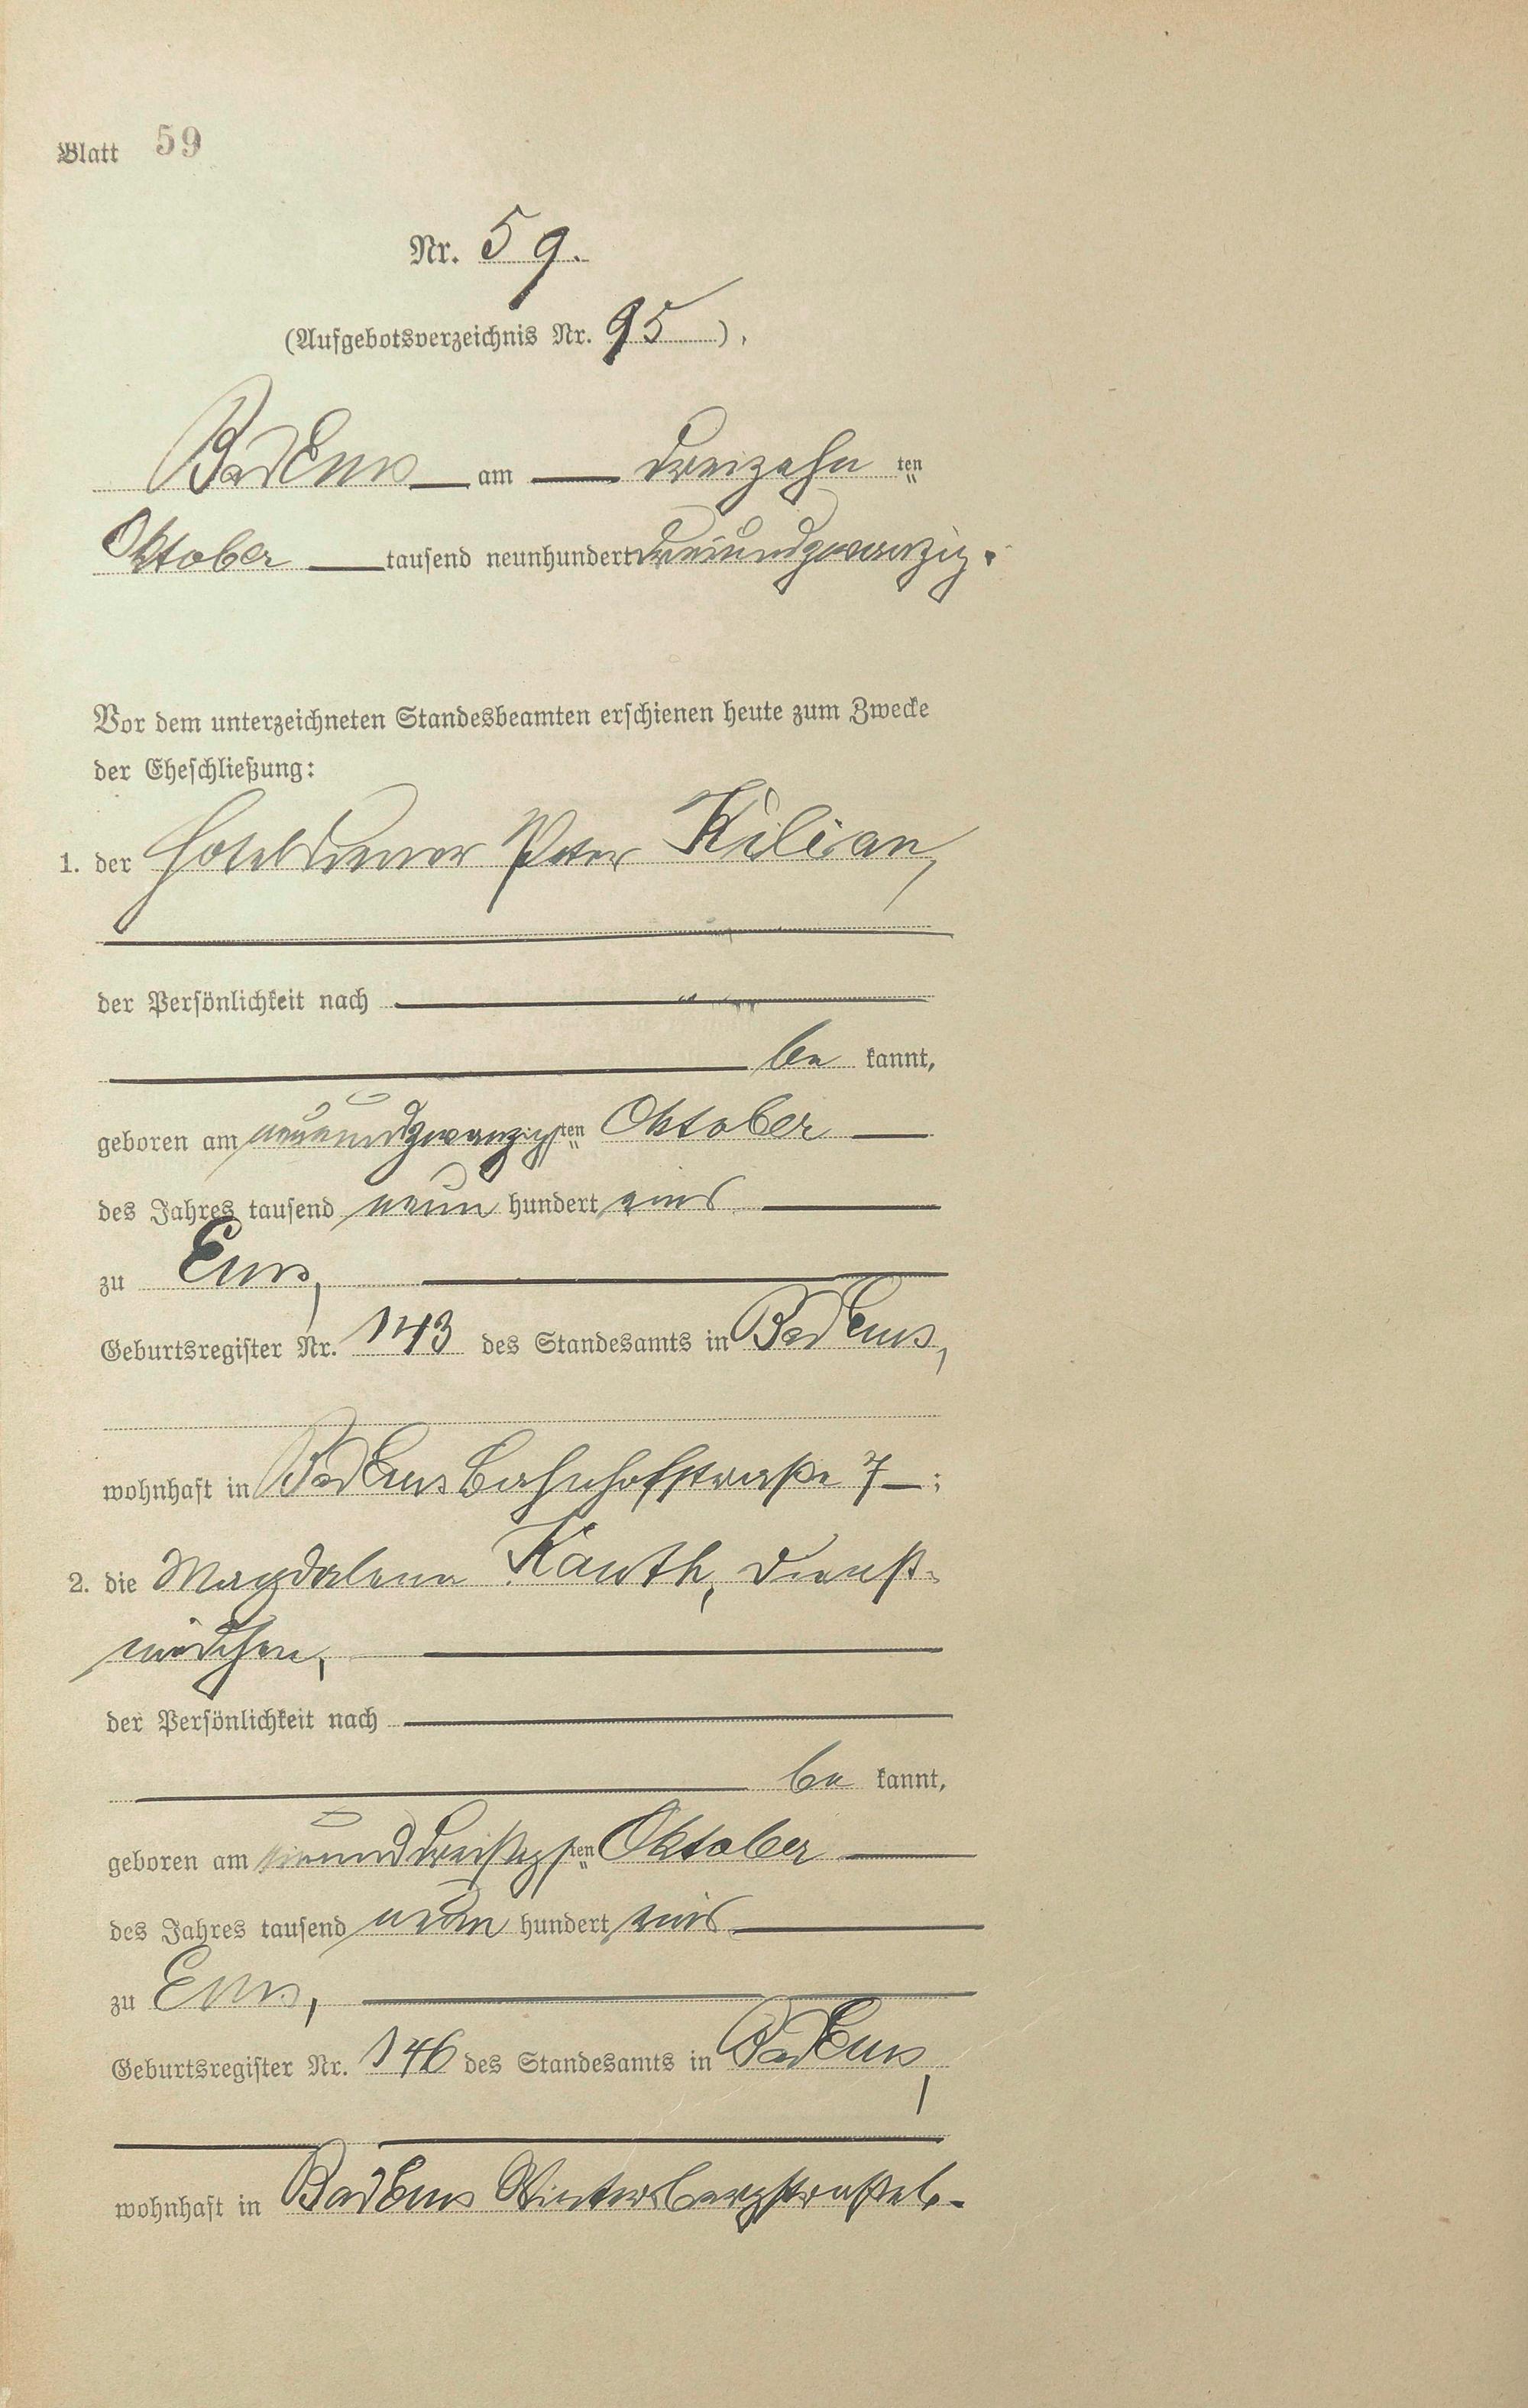 Blatt 59
Nr. 59.
(Aufgebotsverzeichnis Nr. 95),
Bad Ems am dreizehn ten
Oktober tausend neunhundert dreiundzwanzig.
Vor dem unterzeichneten Standesbeamten erschienen heute zum Zwecke
der Eheschließung:
1. der Hoteldiener Peter Kilian,
der Persönlichkeit nach
be kannt,
geboren am neunundzwanzigsten Oktober
des Jahres tausend neun hundert eins
zu Ems,
Geburtsregister Nr. 143 des Standesamts in Bad Ems,
wohnhaft in Bad Ems Bahnhofstraße 7 ;
2. die Magdalena Kauth, Dienst-
mädchen,
der Persönlichkeit nach
be kannt,
geboren am einunddreißigsten Oktober
des Jahres tausend neun hundert eins
zu Ems,
Geburtsregister Nr. 146 des Standesamts in Bad Ems,
wohnhaft in Bad Ems Wintersbergstraße